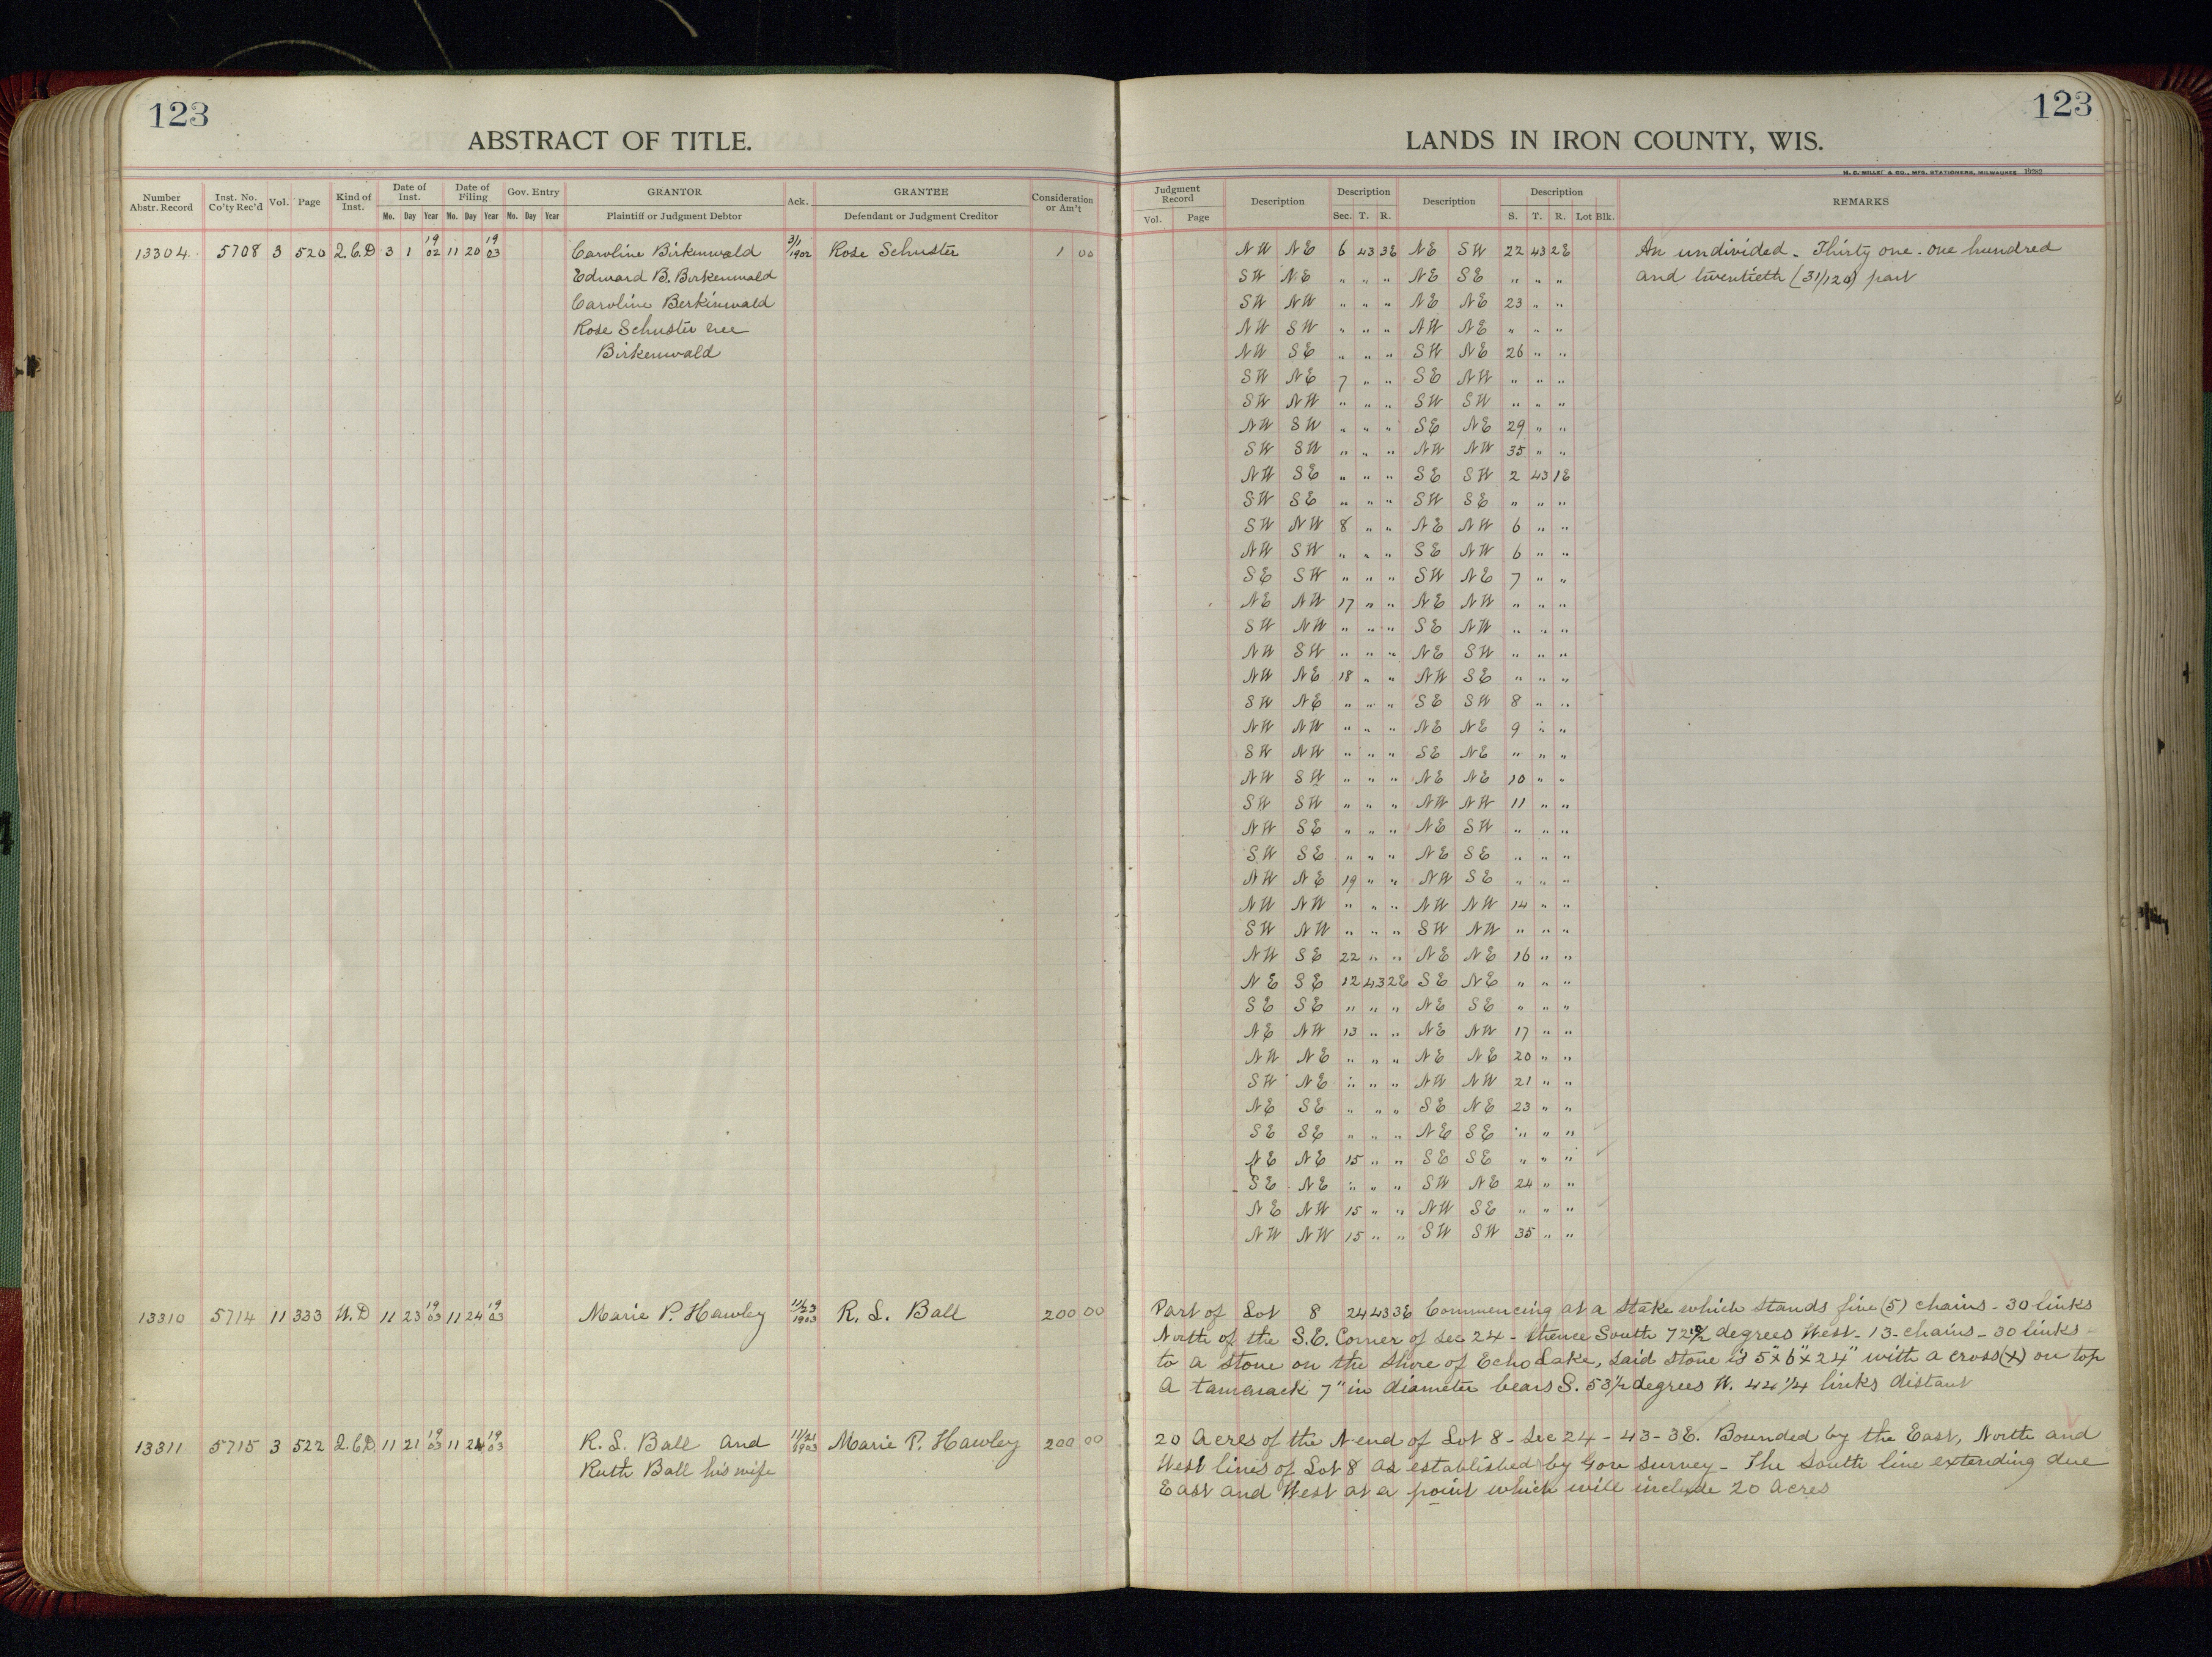 123
ABSTRACT OF TITLE.
Number Abstr. Record | Inst. No. Co'ty Rec'd | Vol. | Page | Kind of Inst. | Date of Inst. Mo. Day Year | Date of Filing Mo. Day Year | Gov. Entry Mo. Day Year | GRANTOR Plaintiff or Judgment Debtor | Ack. | GRANTEE Defendant or Judgment Creditor | Consideration or Am't
13304 5708 3 520 Q.C.D 3 1 1902 11 20 1903 Caroline Birkenwald 3/1 1902 Rose Schuster 1 00
Edward B. Birkenwald
Caroline Berkinwald
Rose Schuster nee
Birkenwald
13310 5714 11 333 W.D 11 23 1903 11 24 1903 Marie P. Hawley 11/23 1903 R. L. Ball 200 00
13311 5715 3 522 Q.C.D. 11 21 1903 11 24 1903 R. L. Ball and 11/21 1903 Marie P. Hawley 200 00
Ruth Ball his wife
123
LANDS IN IRON COUNTY, WIS.
H. C. MILLER & CO., MFG. STATIONERS, MILWAUKEE
Judgment Record Vol. Page | Description | Description Sec. T. R. | Description | Description S. T. R. Lot Blk. | REMARKS
NW NE 6 43 3E NE SW 22 43 2E An undivided - Thirty one - one hundred
SW NE " " " NE SE " " " and twentieth (31/120) part
SW NW " " " NE NE 23 " "
NW SW " " " NW NE " " "
NW SE " " " SW NE 26 " "
SW NE 7 " " SE NW " " "
SW NW " " " SW SW " " "
NW SW " " " SE NE 29 " "
SW SW " " " NW NW 35 " "
NW SE " " " SE SW 2 43 1E
SW SE " " " SW SE " " "
SW NW 8 " " NE NW 6 " "
NW SW " " " SE NW 6 " "
SE SW " " " SW NE 7 " "
NE NW 17 " " NE NW " " "
SW NW " " " SE NW " " "
NW SW " " " NE SW " " "
NW NE 18 " " NW SE " " "
SW NE " " " SE SW 8 " "
NW NW " " " NE NE 9 " "
SW NW " " " SE NE " " "
NW SW " " " NE NE 10 " "
SW SW " " " NW NW 11 " "
NW SE " " " NE SW " " "
SW SE " " " NE SE " " "
NW NE 19 " " NW SE " " "
NW NW " " " NW NW 14 " "
SW NW " " " SW NW " " "
NW SE 22 " " NE NE 16 " "
NE SE 12 43 2E SE NE " " "
SE SE " " " NE SE " " "
NE NW 13 " " NE NW 17 " "
NW NE " " " NE NE 20 " "
SW NE " " " NW NW 21 " "
NE SE " " " SE NE 23 " "
SE SE " " " NE SE " " "
NE NE 15 " " SE SE " " "
SE NE " " " SW NE 24 " "
NE NW 15 " " NW SE " " "
NW NW 15 " " SW SW 35 " "
Part of Lot 8 24 43 3E Commencing at a stake which stands five (5) chains - 30 links
North of the S.E. Corner of sec 24 - thence South 72 1/2 degrees West - 13 - chains - 30 links -
to a stone on the shore of Echo Lake, said stone is 5"x6"x24" with a cross (x) on top
A tamarack 7" in diameter bears S. 53 1/2 degrees W. 44 1/4 links distant
20 Acres of the N end of Lot 8 - Sec 24 - 43 - 3E. Bounded by the East, North and
West lines of Lot 8 as established by Gov survey - The South line extending due
East and West at a point which will include 20 Acres